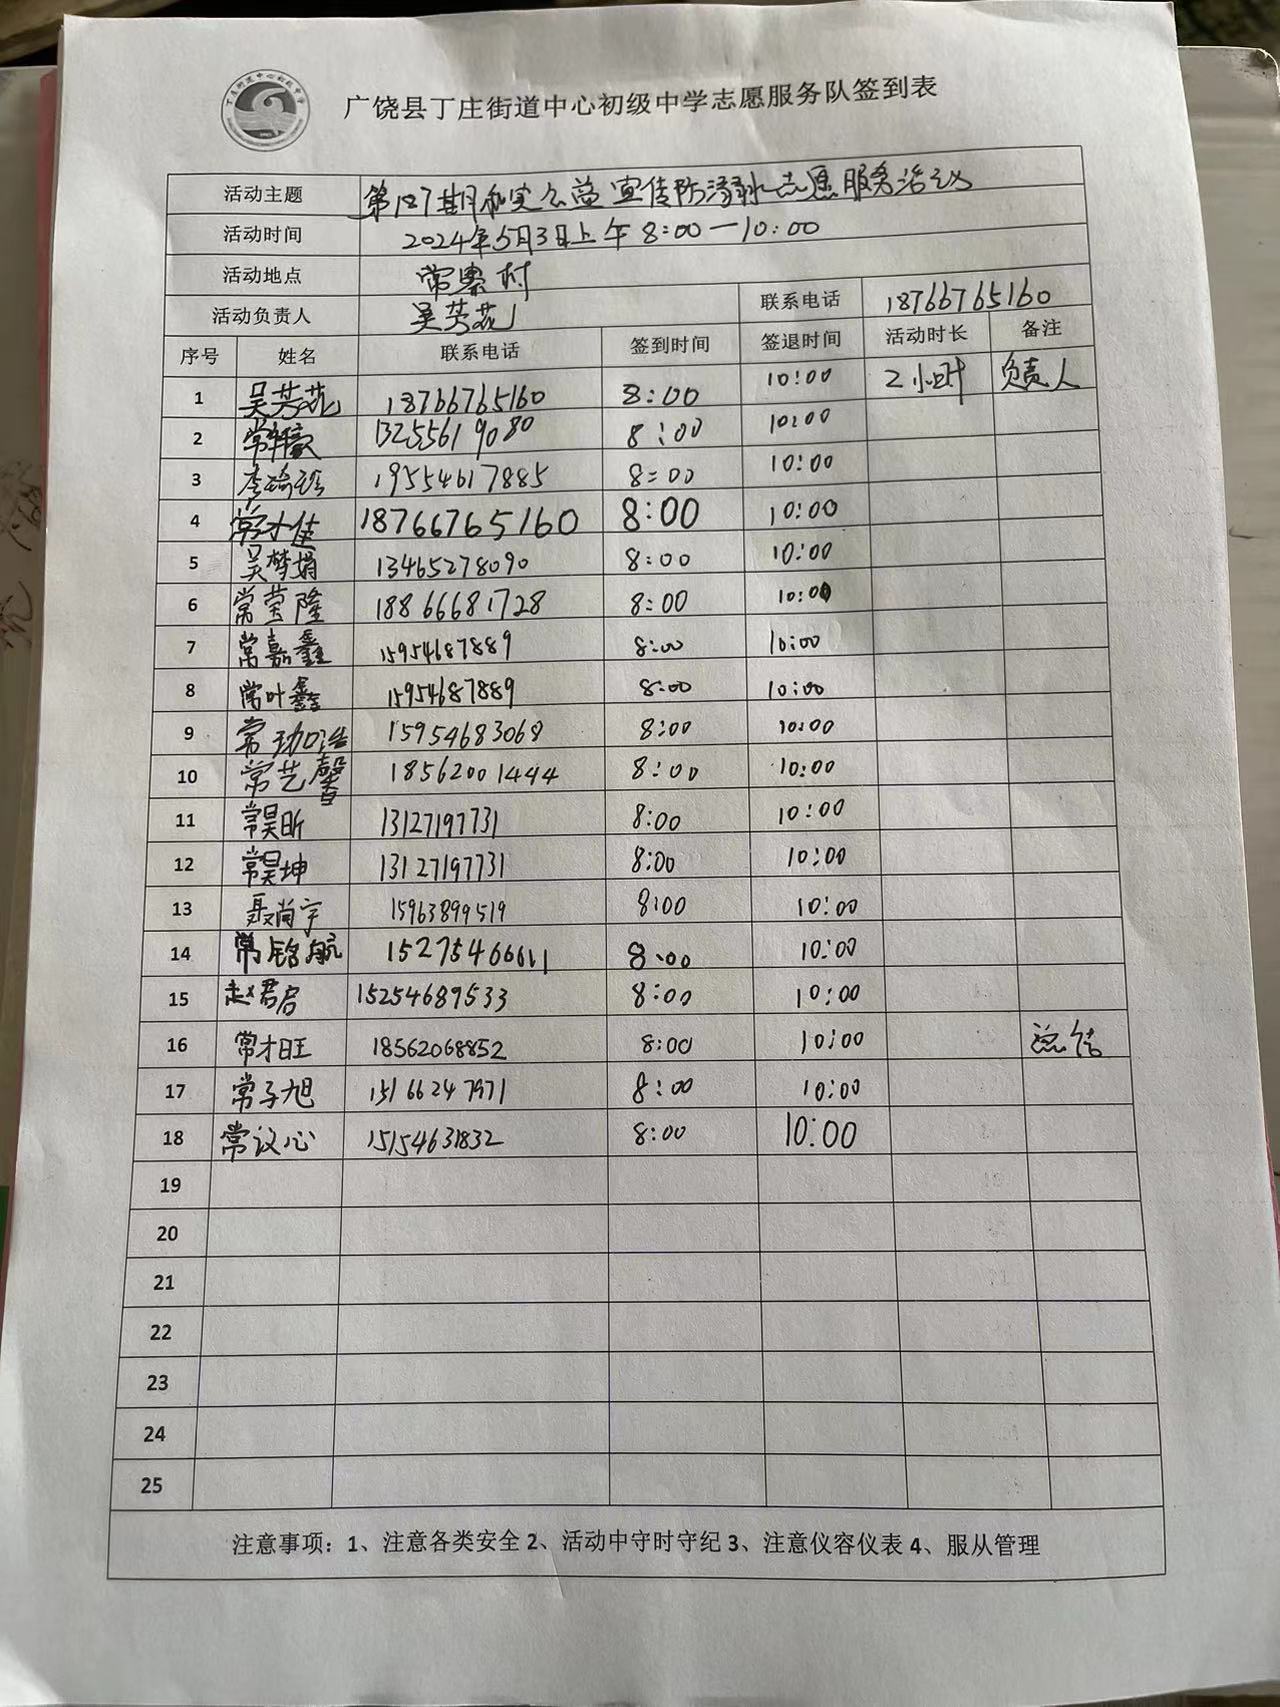 广饶县丁庄街道中心初级中学志愿服务队签到表
活动主题 第187期和实公益宣传防溺水志愿服务活动
活动时间 2024年5月3日上午8:00—10:00
活动地点 常寨村
活动负责人 吴芳花 联系电话 18766765160
序号 姓名 联系电话 签到时间 签退时间 活动时长 备注
1 吴芳花 18766765160 8:00 10:00 2小时 负责人
2 13255619080 8:00 10:00
3 19554617885 8:00 10:00
4 常才佳 18766765160 8:00 10:00
5 吴梦娟 13465278090 8:00 10:00
6 常莹隆 18866681728 8:00 10:00
7 常嘉鑫 15954687889 8:00 10:00
8 常叶鑫 15954687889 8:00 10:00
9 15954683068 8:00 10:00
10 常艺馨 18562001444 8:00 10:00
11 常昊昕 13127197731 8:00 10:00
12 常昊坤 13127197731 8:00 10:00
13 聂尚宇 15963899519 8:00 10:00
14 常铭航 15275466611 8:00 10:00
15 赵君启 15254689533 8:00 10:00
16 常才旺 18562068852 8:00 10:00
17 常子旭 15166247971 8:00 10:00
18 常议心 15154631832 8:00 10:00
19
20
21
22
23
24
25
注意事项：1、注意各类安全 2、活动中守时守纪 3、注意仪容仪表 4、服从管理